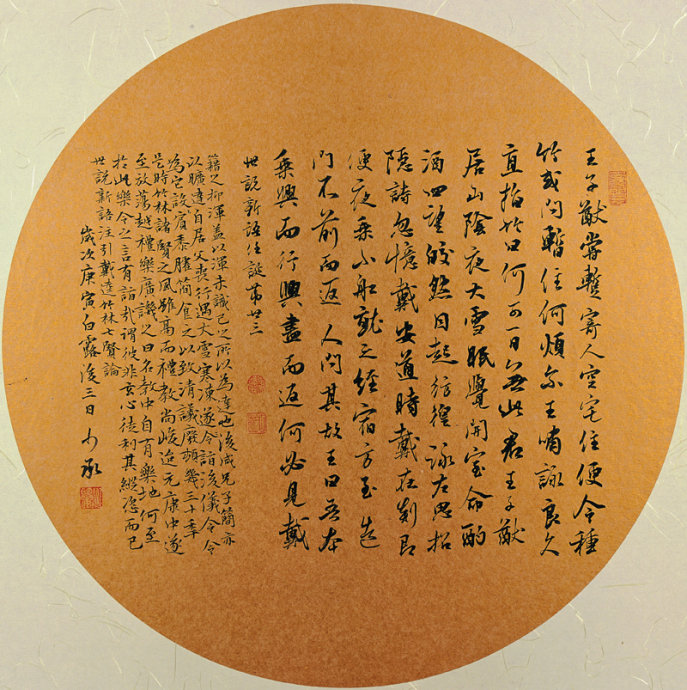 王子猷嘗暫寄人空宅住便令種
竹或问暫住何煩尔王嘯詠良久
直指竹曰何可一日無此君王子猷
居山陰夜大雪眠覺開室命酌
酒四望皎然因起彷徨詠左思招
隱詩忽憶戴安道時戴在剡即
便夜乘小船就之經宿方至造
门不前而返人问其故王曰吾本
乘興而行興盡而返何必見戴
世説新语任誕第廿三
籍之抑渾蓋以渾未識己之所以為達也後咸兄子簡亦
以曠達自居父喪行遇大雪寒凍遂令詣浚儀令令
為它設賓黍臛簡食之以致清議廢頓幾三十年
是時竹林諸賢之風雖高而禮教尚峻迨元康中遂
至放蕩越禮樂廣譏之曰名教中自有樂地何至
於此樂令之言有詣哉謂彼非玄心徒利其縱恣而已
世説新语注引戴逵竹林七賢論
歲次庚寅白露後三日